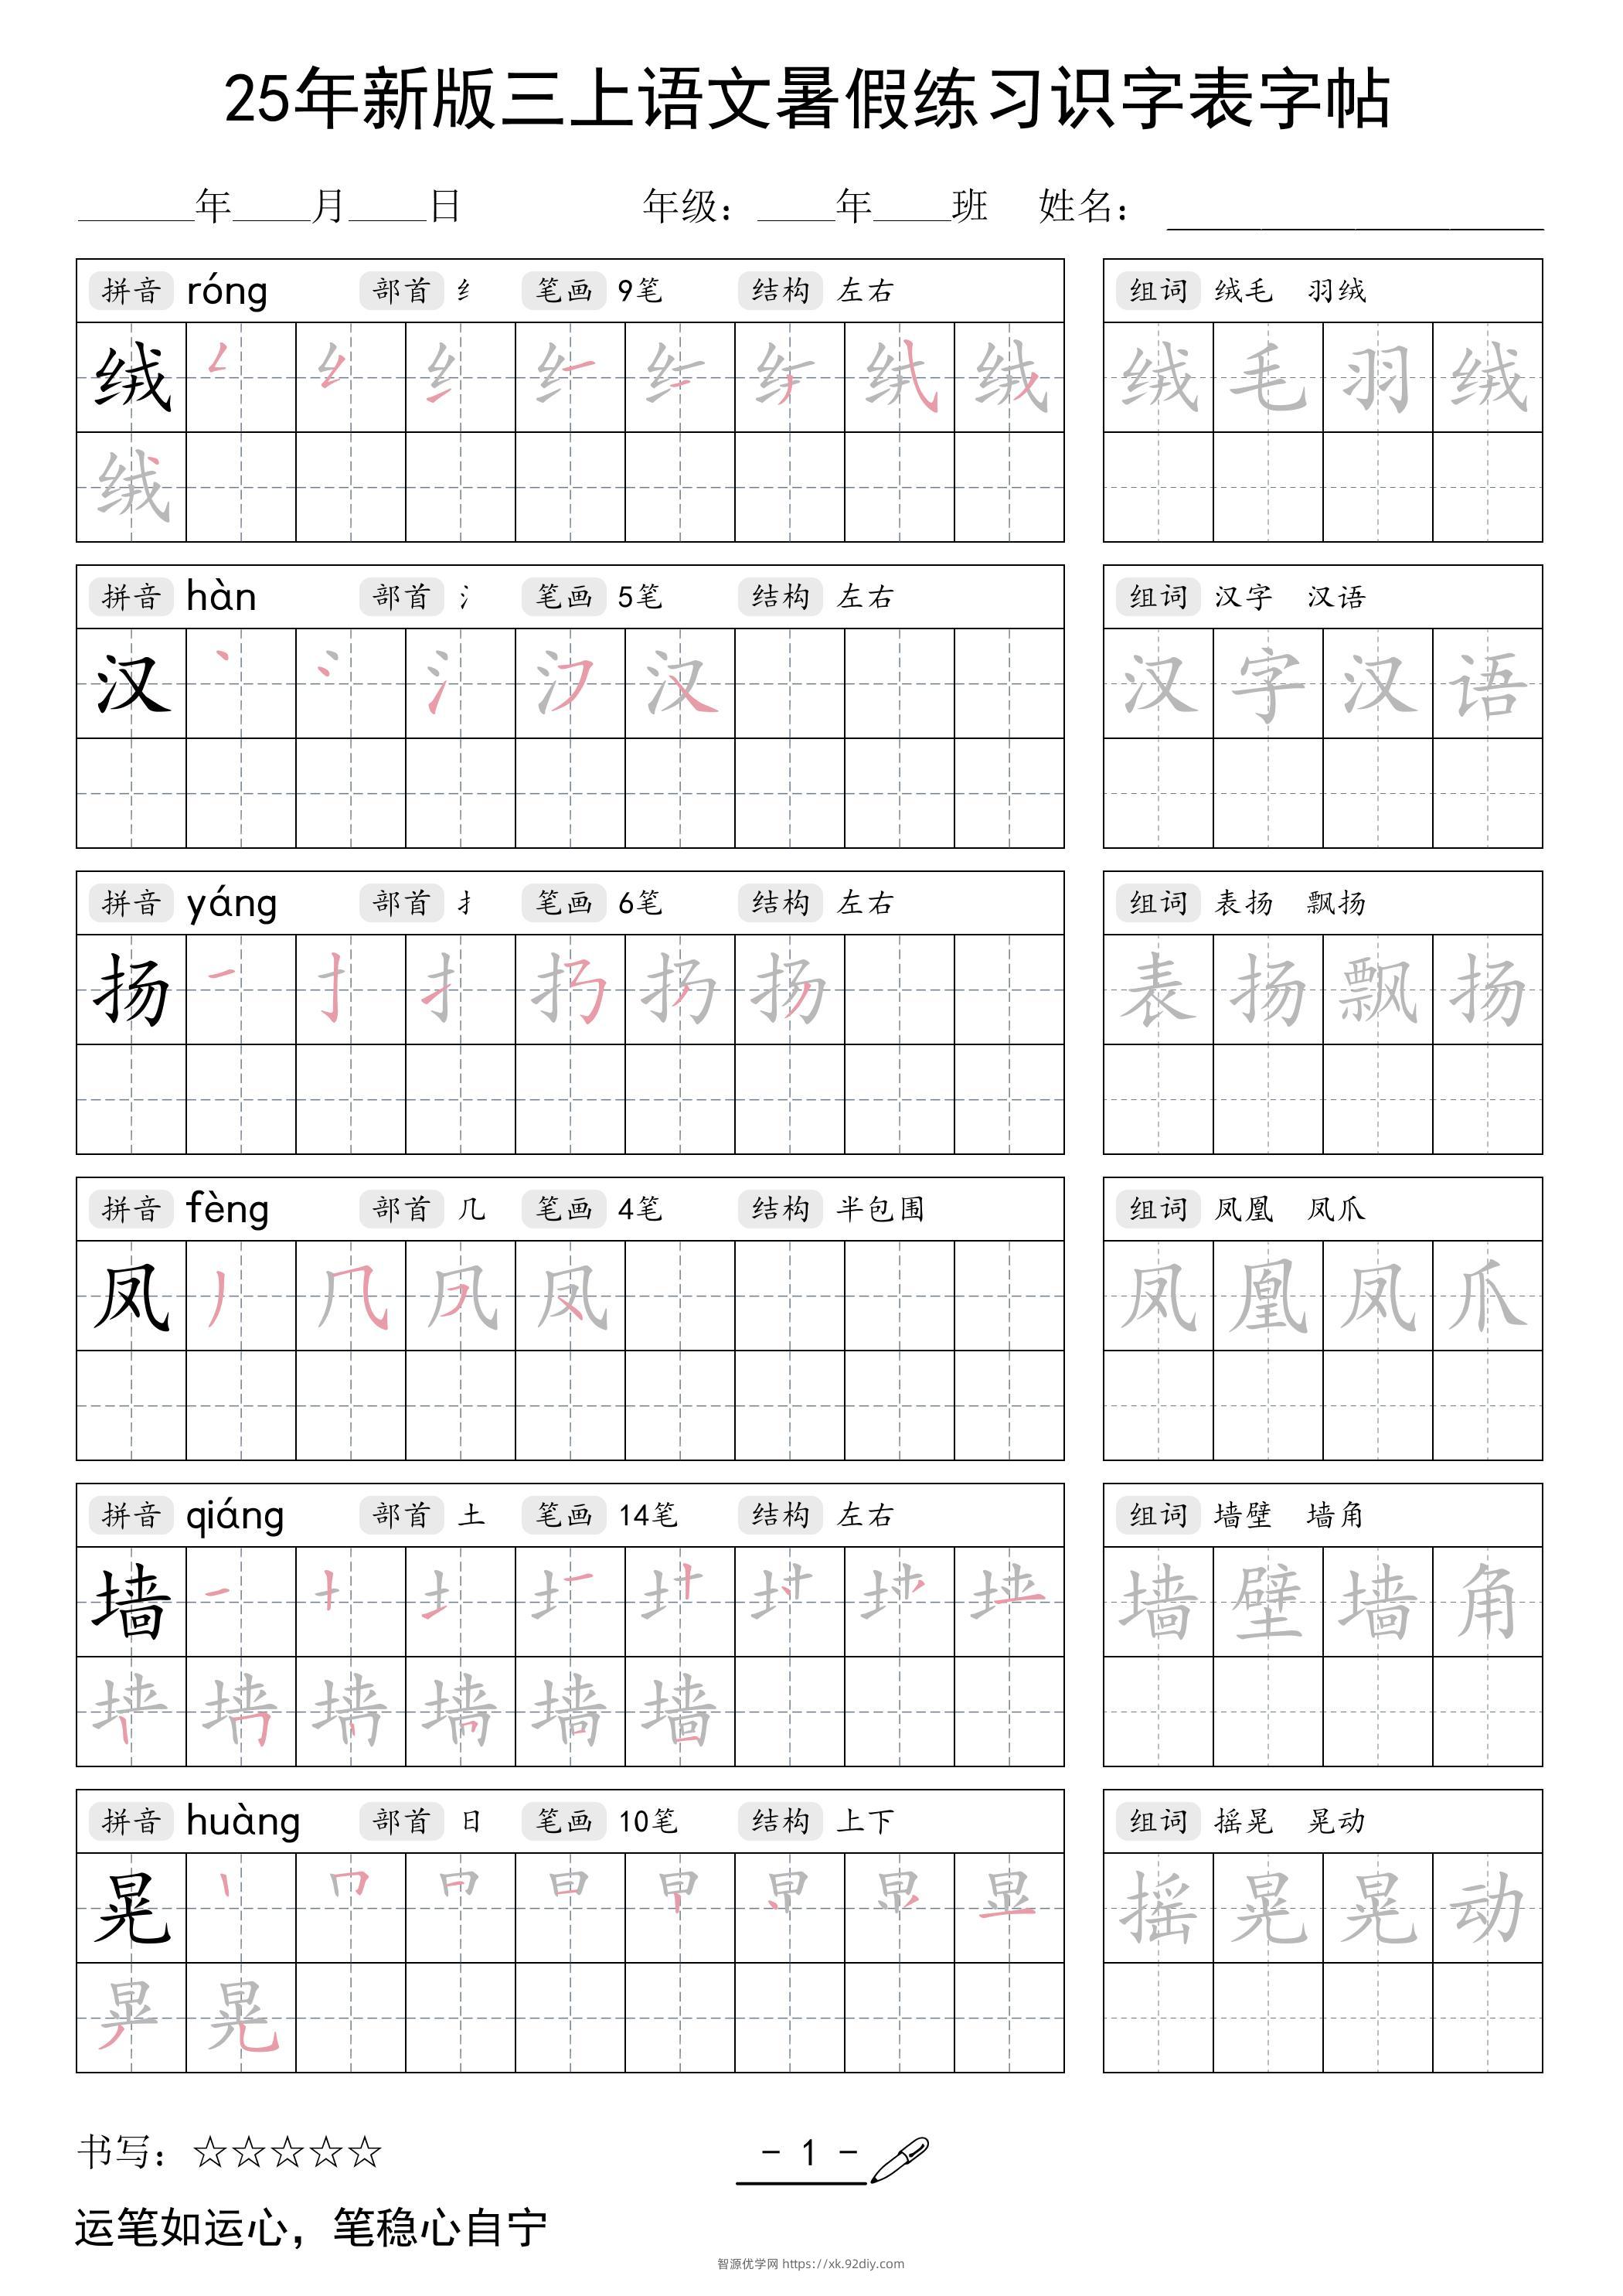 25年新版三上语文暑假练习识字表字帖
______年____月____日 年级：____年____班 姓名：
拼音 róng 部首 纟 笔画 9笔 结构 左右 组词 绒毛 羽绒
绒 绒 毛 羽 绒
绒
拼音 hàn 部首 氵 笔画 5笔 结构 左右 组词 汉字 汉语
汉 汉 汉 字 汉 语
拼音 yáng 部首 扌 笔画 6笔 结构 左右 组词 表扬 飘扬
扬 扬 表 扬 飘 扬
拼音 fèng 部首 几 笔画 4笔 结构 半包围 组词 凤凰 凤爪
凤 凤 凤 凰 凤 爪
拼音 qiáng 部首 土 笔画 14笔 结构 左右 组词 墙壁 墙角
墙 墙 壁 墙 角
墙
拼音 huàng 部首 日 笔画 10笔 结构 上下 组词 摇晃 晃动
晃 摇 晃 晃 动
晃
书写：☆☆☆☆☆ - 1 -
运笔如运心，笔稳心自宁
智源优学网 https://xk.92diy.com